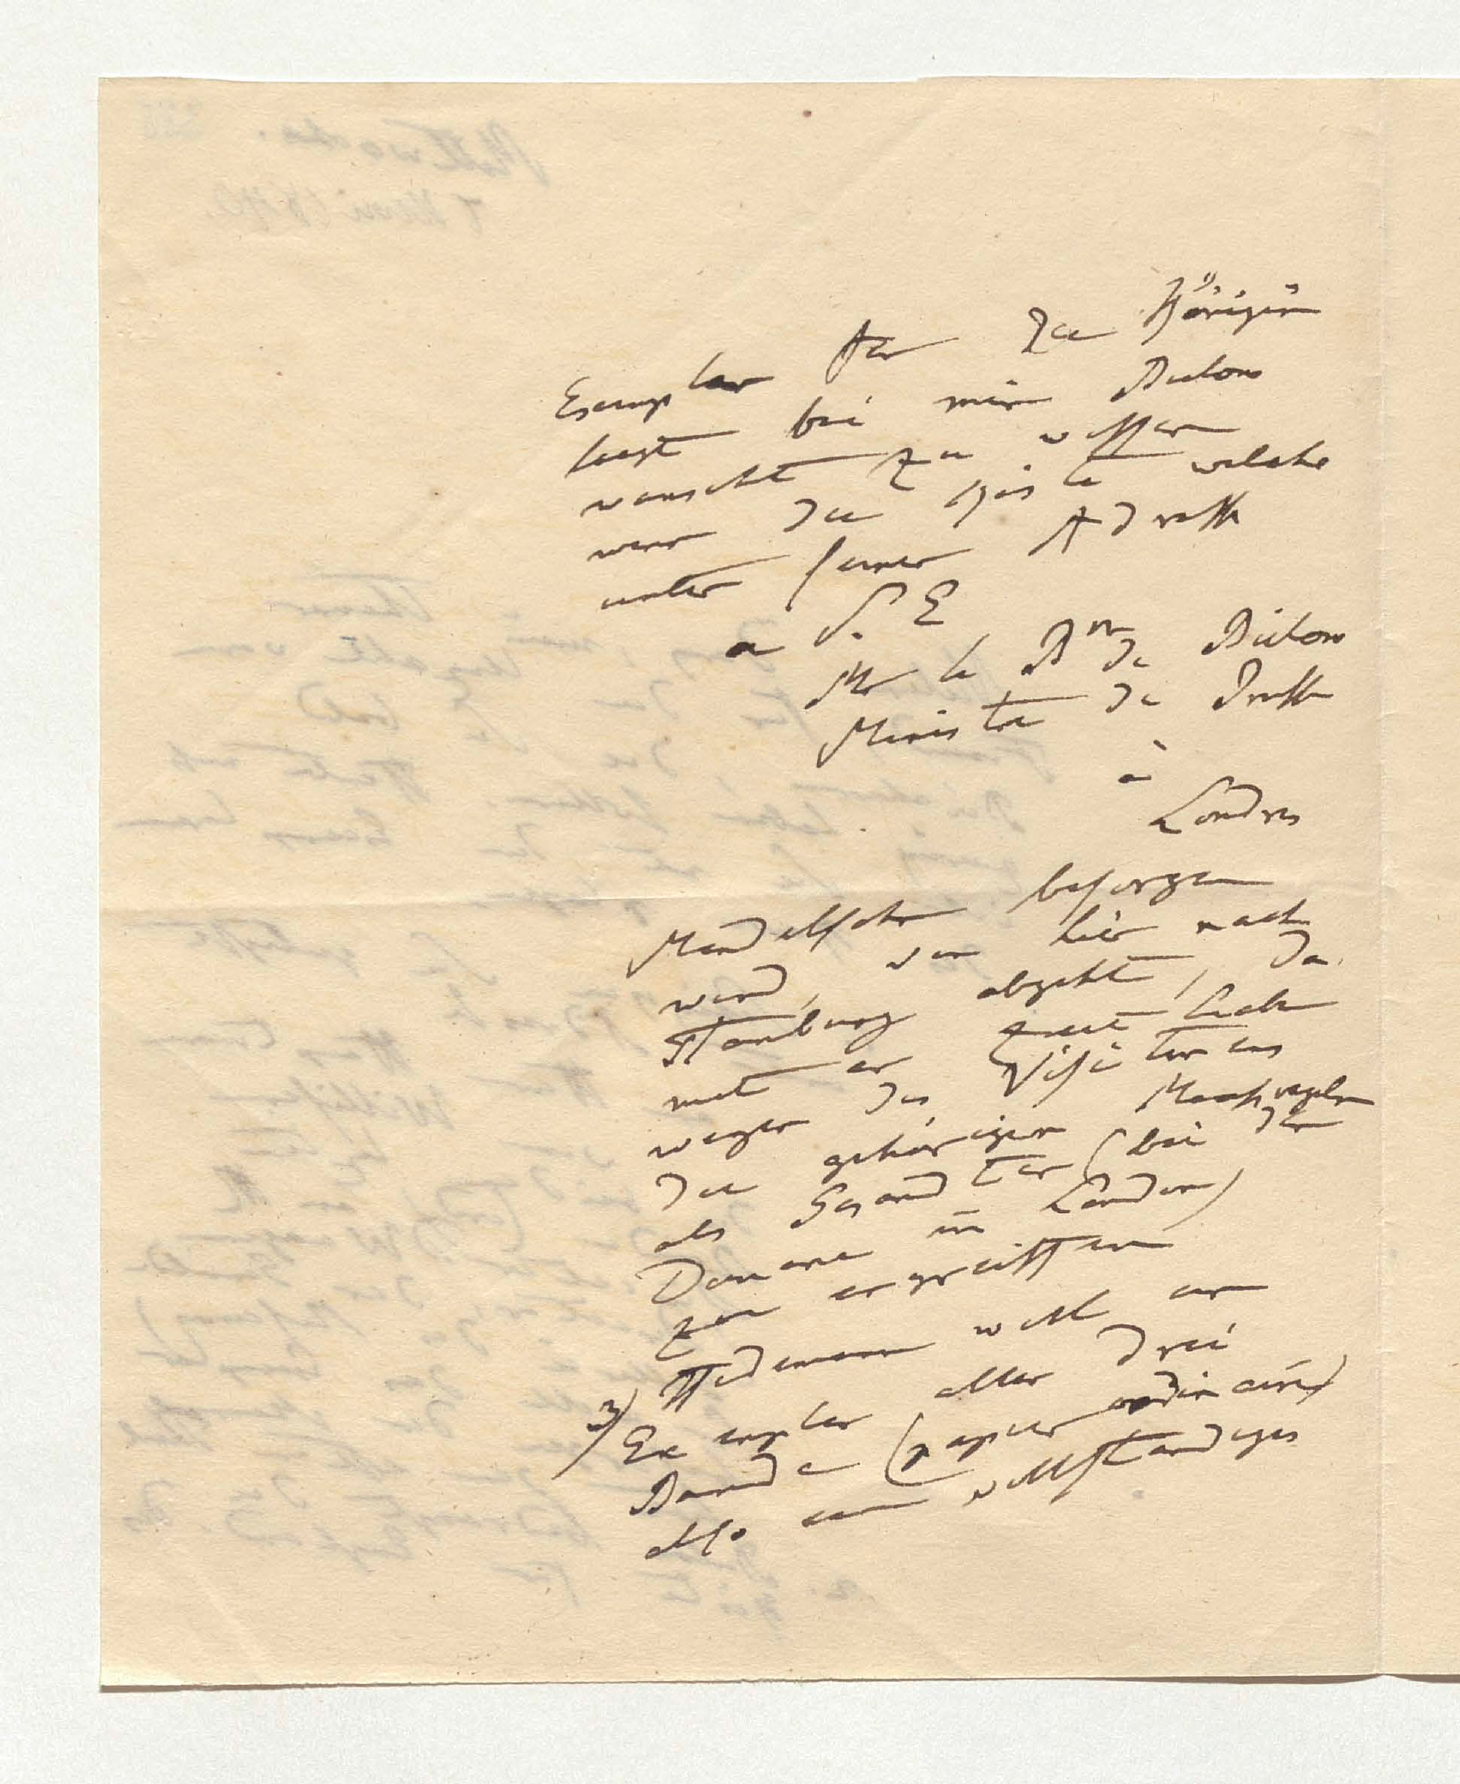 Exemplar für die Königin
liegt bei mir Bülow
wünscht zu wissen
wenn die Kiste welche
unter seiner Adresse
a S. E
Mr le Bn de Bülow
Ministre de Prusse
à
Londres
Mendelsohn besorgen
wird, von hier nach
Hamburg abgeht, da
mit er zeitlich
wegen des Visitirens
die gehörigen Maasregeln
als Gesandter (bei der
Douane in London)
zu ergreiffen
3) Hedemann will ein
Exemplar aller drei
Bände (papier ordinaire)
also ein vollständiges